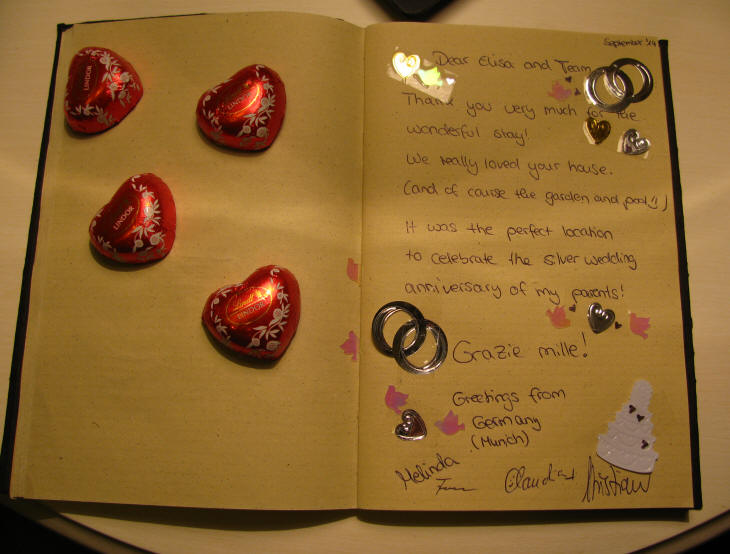 LINDOR
LINDOR
LINDOR
Lindt
LINDOR
September '14
Dear Elisa and Team,
Thank you very much for the
wonderful stay!
We really loved your house.
(and of course the garden and pool :))
It was the perfect location
to celebrate the silver wedding
anniversary of my parents!
Grazie mille!
Greetings from
Germany
(Munich)
Melinda
Claudia